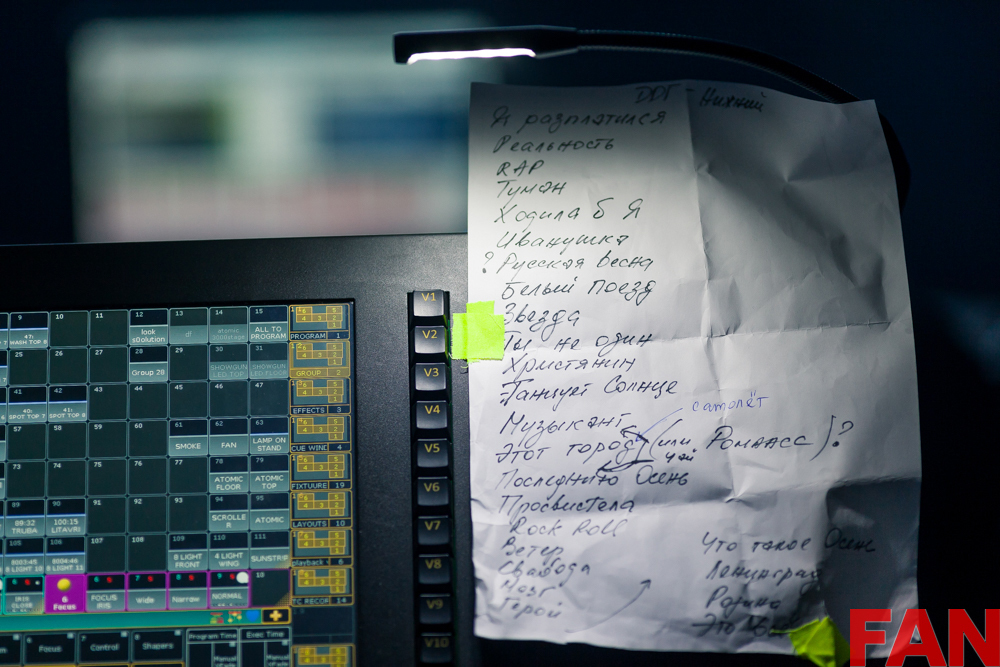 ДДТ - Нижний
Я разплатился
Реальность
RAP
Туман
Ходила б Я
Иванушка
? Русская весна
Белый поезд
Звезда
Ты не один
Христянин
Танцует Солнце
самолёт
Музыкант
Этот город (или Романсс)?
чай
Последнию Осень
Просвистела
Rock Roll
Ветер
Свабода
Мозг
Герой
Что такое Осень
Ленинград
Родина
Это
V1
V2
V3
V4
V5
V6
V7
V8
V9
V10
9 10 11 12 13 14 15
47: WASH TOP 8
look sOlution
ALL TO PROGRAM
PROGRAM 1
25 26 27 28 29 30 31
Group 28
SHOWGUN LED TOP
SHOWGUN LED FLOOR
GROUP 2
41 42 43 44 45 46 47
40: SPOT TOP 7
41: SPOT TOP 8
EFFECTS 3
57 58 59 60 61 62 63
SMOKE
FAN
LAMP ON STAND
CUE WIND 4
73 74 75 76 77 78 79
ATOMIC FLOOR
ATOMIC TOP
FIXTUURE 19
89 90 91 92 93 94 95
88:32 TRUBA
100:15 LITAVRI
SCROLLER
ATOMIC
LAYOUTS 10
105 106 107 108 109 110 111
8 LIGHT FRONT
4 LIGHT WING
SUNSTRIP
playback 6
IRIS CLOSE
6 Focus
FOCUS IRIS
Wide
Narrow
NORMAL
10
TC RECOR 14
Focus
Control
Shapers
Program Time
Exec Time
FAN